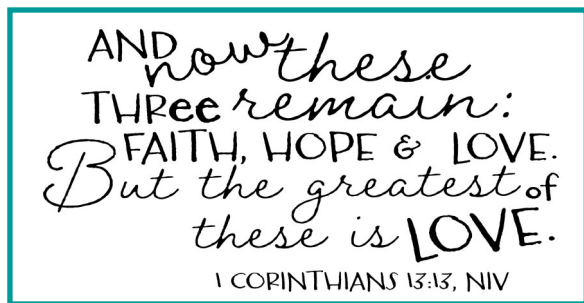 AND now these
THRee remain:
FAITH, HOPE & LOVE.
But the greatest of
these is LOVE.
1 CORINTHIANS 13:13, NIV